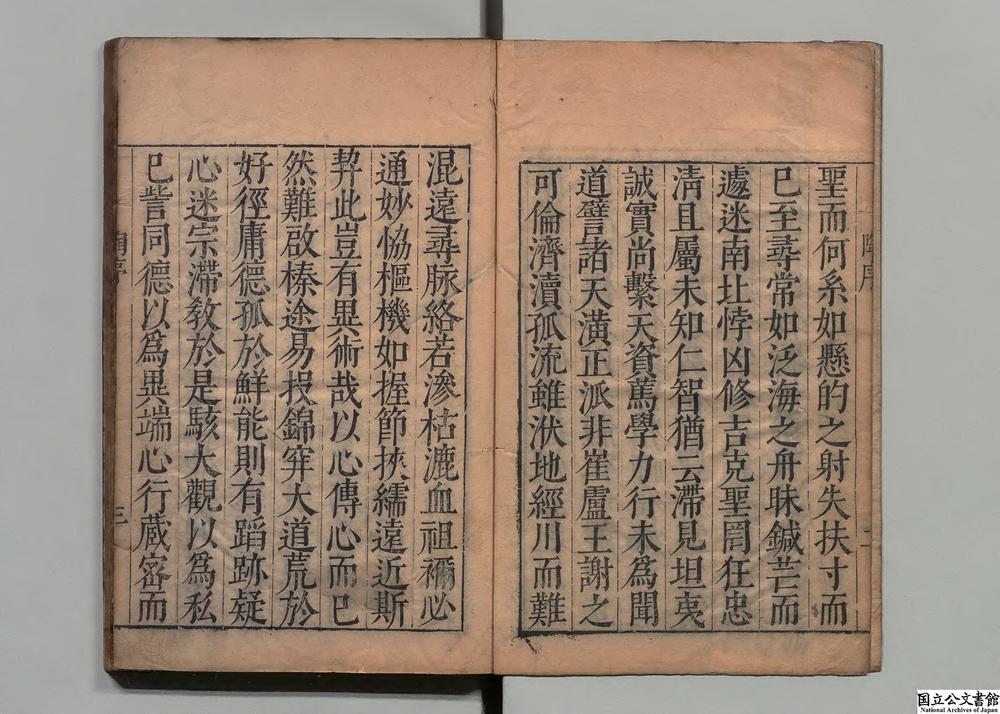 聖而何系如懸的之射失扶寸而
已至尋常如泛海之舟昧鍼芒而
遽迷南北悖凶修吉克聖罔狂忠
清且屬未知仁智猶云滯見坦夷
誠實尚繫天資篤學力行未爲聞
道譬諸天潢正派非崔盧王謝之
可倫濟瀆孤流雖洑地經川而難
二
混遠尋脉絡若滲枯漉血祖禰必
通妙恊樞機如握節挾繻遠近斯
契此豈有異術哉以心傳心而已
然難啟榛途易投錦穽大道荒於
好徑庸德孤於鮮能則有蹈跡疑
心迷宗滯敎於是駭大觀以爲私
已訾同德以爲異端心行蔵宻而
序
三
国立公文書館
National Archives of Japan